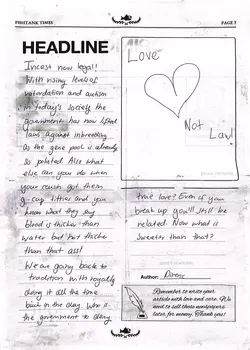 FISHTANK TIMES
PAGE 7
HEADLINE
Incest now legal!
With rising levels of
retardation and autism
in today's society the
government has now lifted
laws against inbreeding
as the gene pool is already
so polluted. Also what
else can you do when
your cousin got them
g cup titties and you
know what they say
blood is thicker than
water but not thicker
than that ass!
We are going back to
tradition with royalty
doing it all the time
back in the day. Who is
the government to deny
Love
Not
Law!
true love? Even if your
break up you'll still be
related. Now what is
sweeter than that?
Author:
Remember to write your
articles with love and care. We
need to sell these newspapers
later for money. Thank you!